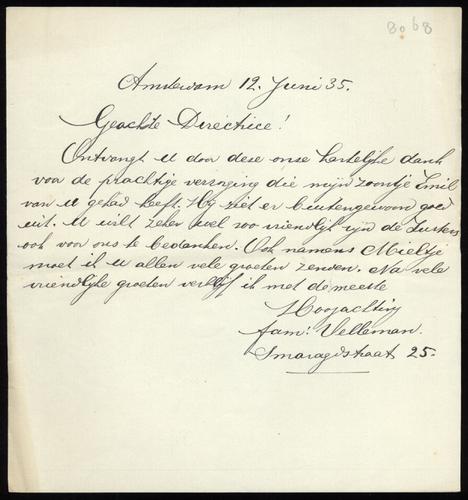 8068
Amsterdam 12. Juni 35.
Geachte Directrice!
Ontvangt U door deze onze hartelijke dank
voor de prachtige verzorging die mijn zoontje Emil
van U gehad heeft. Hij ziet er buitengewoon goed
uit. U wilt zeker wel zoo vriendlijk zijn de Zusters
ook voor ons te bedanken. Ook namens Mieltje
moet ik U allen vele groeten zenden. Na vele
vriendlijke groeten verblijf ik met de meeste
Hoogachting
fam: Velleman.
Smaragdstraat 25.